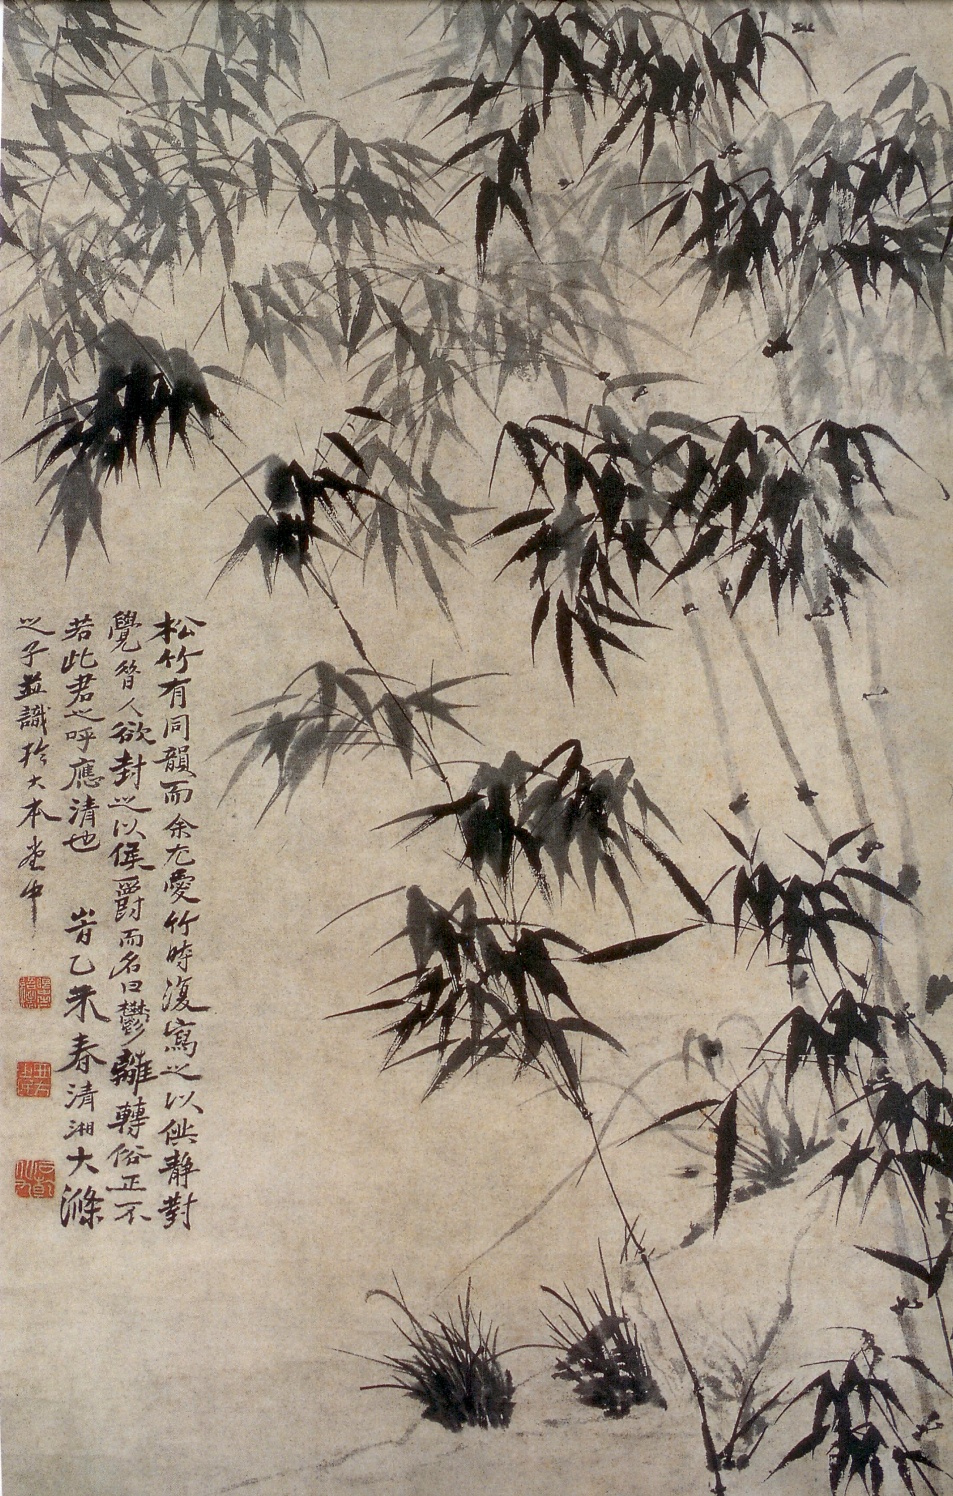 松竹有同韻而余尤愛竹時復寫之以供静對
覺昝人欲封之以侯爵而名曰鬱離轉俗正不
若此君之呼應清也 旹乙未春清湘大滌
之子並識於大本堂中